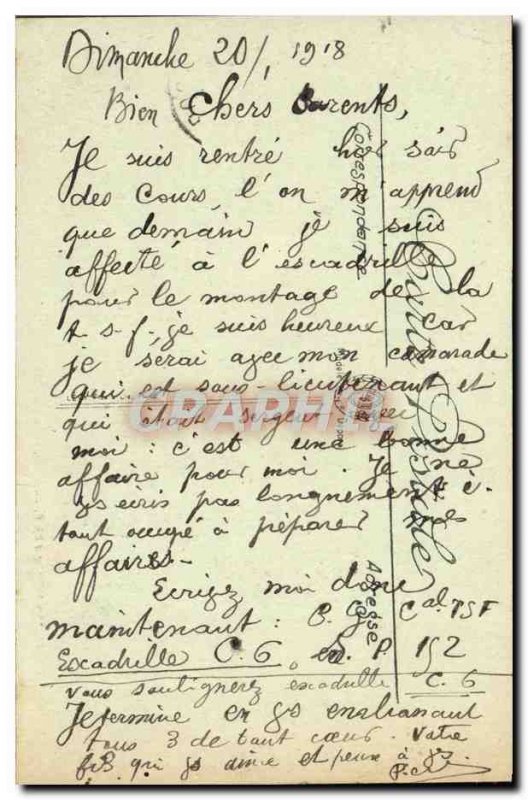 Dimanche 20/1 1918
Bien chers Parents,
Je suis rentré hier soir
des cours, l'on m'apprend
que demain je suis
affecté à l'escadrille
pour le montage de la
t.s.f. je suis heureux car
je serai avec mon camarade
qui est sous-lieutenant et
qui était sergent
moi : c'est une bonne
affaire pour moi. Je ne
vs écris pas longuement
tant occupé à préparer mes
affaires.
Ecrivez moi donc
maintenant : C. Cal TSF
Escadrille C. 6 P. 152
vous soulignerez escadrille C. 6
Je termine en vs embrassant
tous 3 de tout cœur. Votre
fils qui vs aime et pense à vs.
Carte Postale
Correspondance
Adresse
CARTHAPHILIE